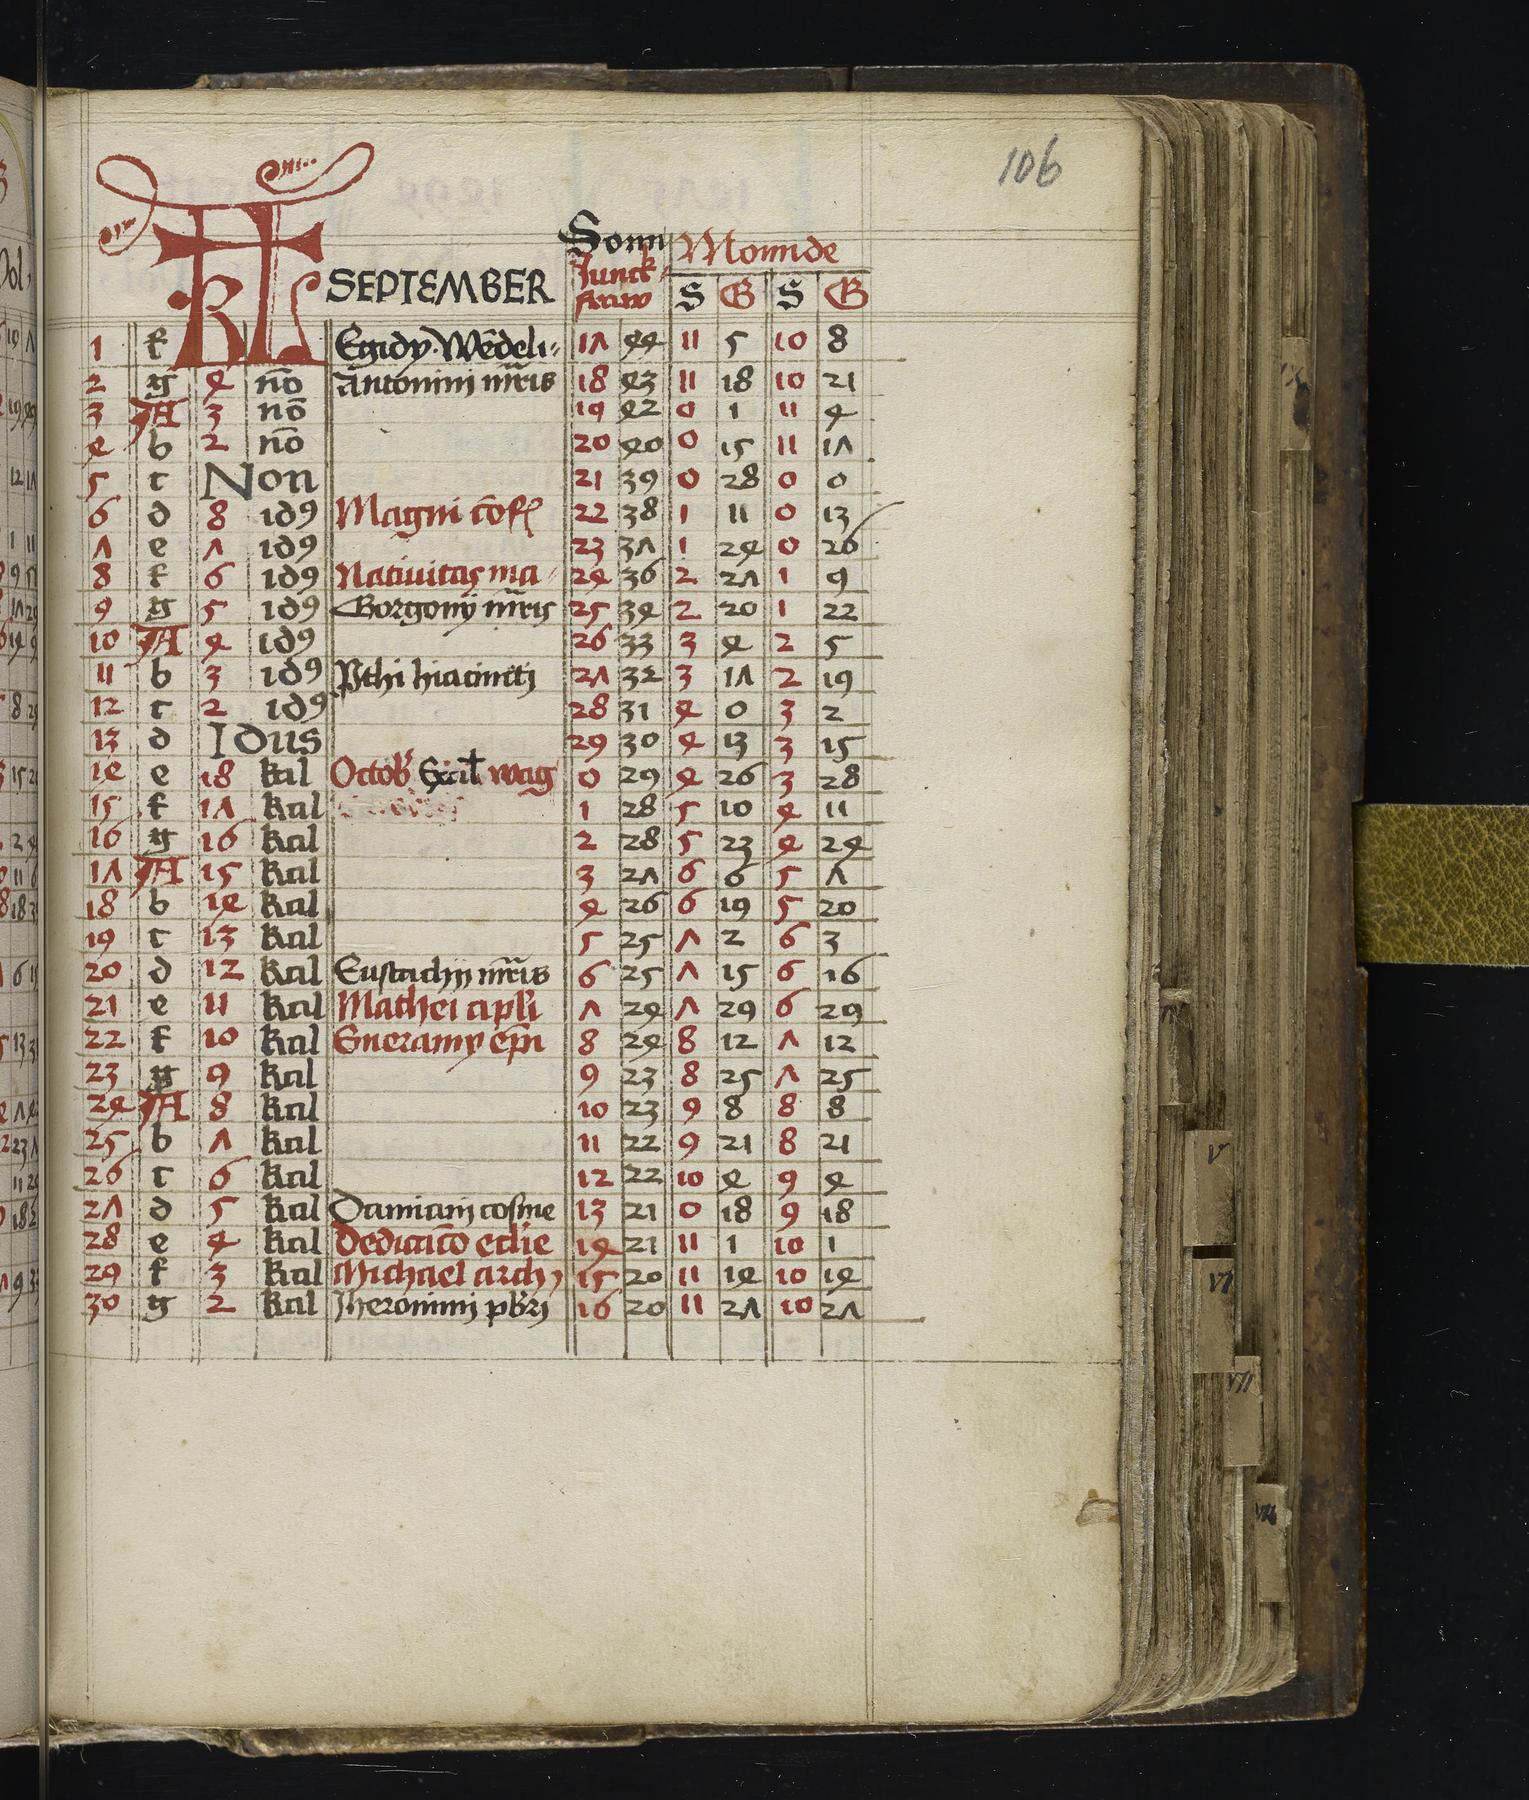 106
KL SEPTEMBER Sonn Junckfraw Monnde S G S G
1 f Egidy. Wēdeli= 17 44 11 5 10 8
2 g 4 nō Antonini mr̄is 18 43 11 18 10 21
3 A 3 nō 19 42 0 1 11 4
4 b 2 nō 20 40 0 15 11 17
5 c Non 21 39 0 28 0 0
6 d 8 id9 Magni cōf 22 38 1 11 0 13
7 e 7 id9 23 37 1 24 0 26
8 f 6 id9 Natiuitas ma= 24 36 2 27 1 9
9 g 5 id9 Gorgonij mr̄is 25 34 2 20 1 22
10 A 4 id9 26 33 3 4 2 5
11 b 3 id9 Pthi hiacincti 27 32 3 17 2 19
12 c 2 id9 28 31 4 0 3 2
13 d Idus 29 30 4 13 3 15
14 e 18 kal Octob Exal† 0 29 4 26 3 28
15 f 17 kal 1 28 5 10 4 11
16 g 16 kal 2 28 5 23 4 24
17 A 15 kal 3 27 6 6 5 7
18 b 14 kal 4 26 6 19 5 20
19 c 13 kal 5 25 7 2 6 3
20 d 12 kal Eustachij mr̄is 6 25 7 15 6 16
21 e 11 kal Mathei apli 7 24 7 29 6 29
22 f 10 kal Emeramy ep̄i 8 24 8 12 7 12
23 g 9 kal 9 23 8 25 7 25
24 A 8 kal 10 23 9 8 8 8
25 b 7 kal 11 22 9 21 8 21
26 c 6 kal 12 22 10 4 9 4
27 d 5 kal Damiani cosme 13 21 0 18 9 18
28 e 4 kal Dedicatō eclie 14 21 11 1 10 1
29 f 3 kal Michael arch, 15 20 11 14 10 14
30 g 2 kal Jheronimi pbri 16 20 11 27 10 27
V
VI
VII